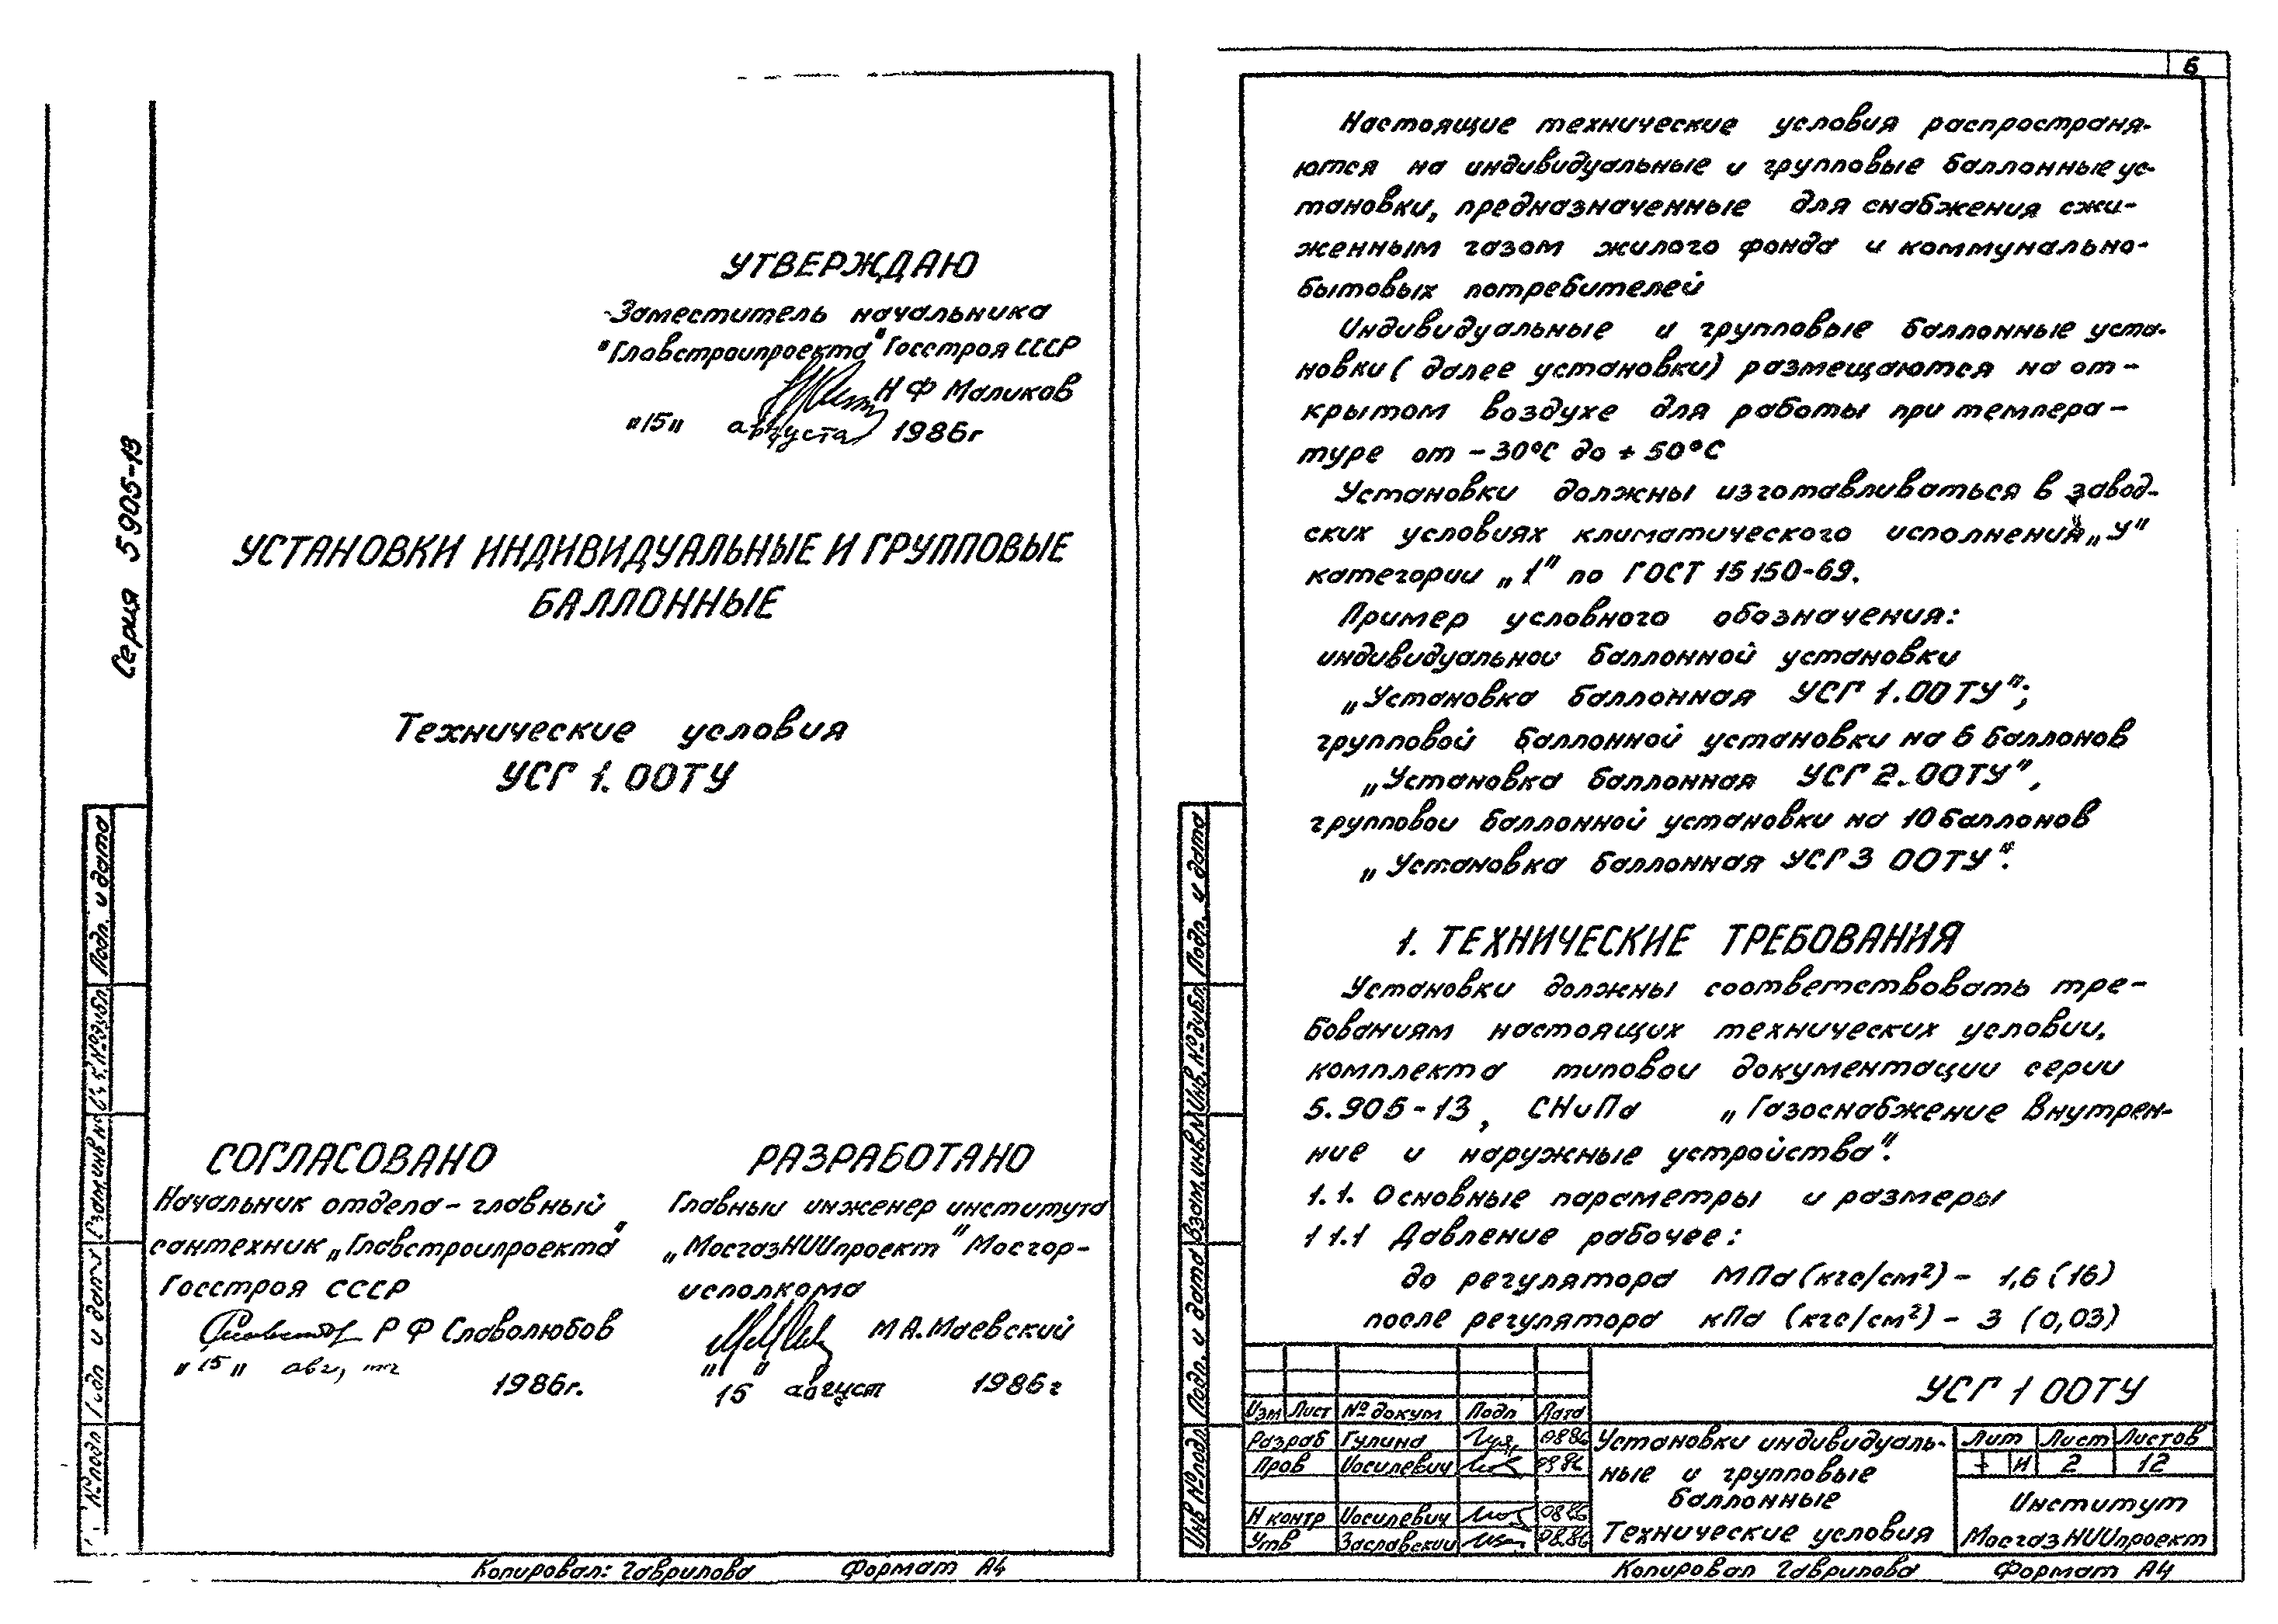 Серия 5 905-13
УТВЕРЖДАЮ
Заместитель начальника
"Главстройпроекта" Госстроя СССР
Н Ф Маликов
„15" августа 1986г
УСТАНОВКИ ИНДИВИДУАЛЬНЫЕ И ГРУППОВЫЕ
БАЛЛОННЫЕ
Технические условия
УСГ 1. 00ТУ
СОГЛАСОВАНО
Начальник отдела – главный
сантехник „Главстройпроекта"
Госстроя СССР
Р Ф Славолюбов
„15"
1986г.
РАЗРАБОТАНО
Главный инженер института
„МосгазНИИпроект" Мосгор-
исполкома
М А. Маевский
15 август 1986г
Подп. и дата
Взам инв №
№ подл
Копировал: Гаврилова Формат А4
6
Настоящие технические условия распростра­ня-
ются на индивидуальные и групповые баллонные ус-
тановки, предназначенные для снабжения сжи-
женным газом жилого фонда и коммунально-
бытовых потребителей
Индивидуальные и групповые баллонные уста-
новки ( далее установки) размещаются на от-
крытом воздухе для работы при темпера-
туре от – 30°С до + 50°С
Установки должны изготавливаться в завод-
ских условиях климатического исполнения „У"
категории „1" по ГОСТ 15150-69.
Пример условного обозначения:
индивидуальной баллонной установки
„Установка баллонная УСГ 1.00ТУ";
групповой баллонной установки на 6 баллонов
„Установка баллонная УСГ 2.00ТУ",
групповой баллонной установки на 10 баллонов
„Установка баллонная УСГ 3 00ТУ".
1. ТЕХНИЧЕСКИЕ ТРЕБОВАНИЯ
Установки должны соответствовать тре-
бованиям настоящих технических условий,
комплекта типовой документации серии
5.905-13, СНиПа „Газоснабжение Внутрен-
ние и наружные устройства".
1.1. Основные параметры и размеры
1 1.1 Давление рабочее:
до регулятора МПа (кгс/см²) – 1,6 (16)
после регулятора кПа (кгс/см²) – 3 (0,03)
Подп. и дата
Инв. № дубл
Взам. инв. №
Подп. и дата
Инв № подл
УСГ 1 00ТУ
Изм Лист № докум Подп Дата
Разраб Гулина 0886
Пров Иосилевич
Н контр Иосилевич 0886
Утв Заславский 08.86
Установки индивидуаль-
ные и групповые
баллонные
Технические условия
Лит Лист Листов
И 2 12
Институт
МосгазНИИпроект
Копировал Гаврилова Формат А4